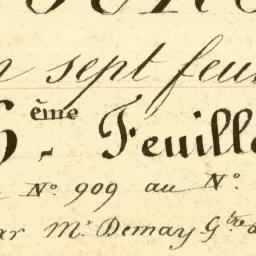 sept feui
6ème Feuille
Nº 909 au Nº
par Mr Demay Gbre d